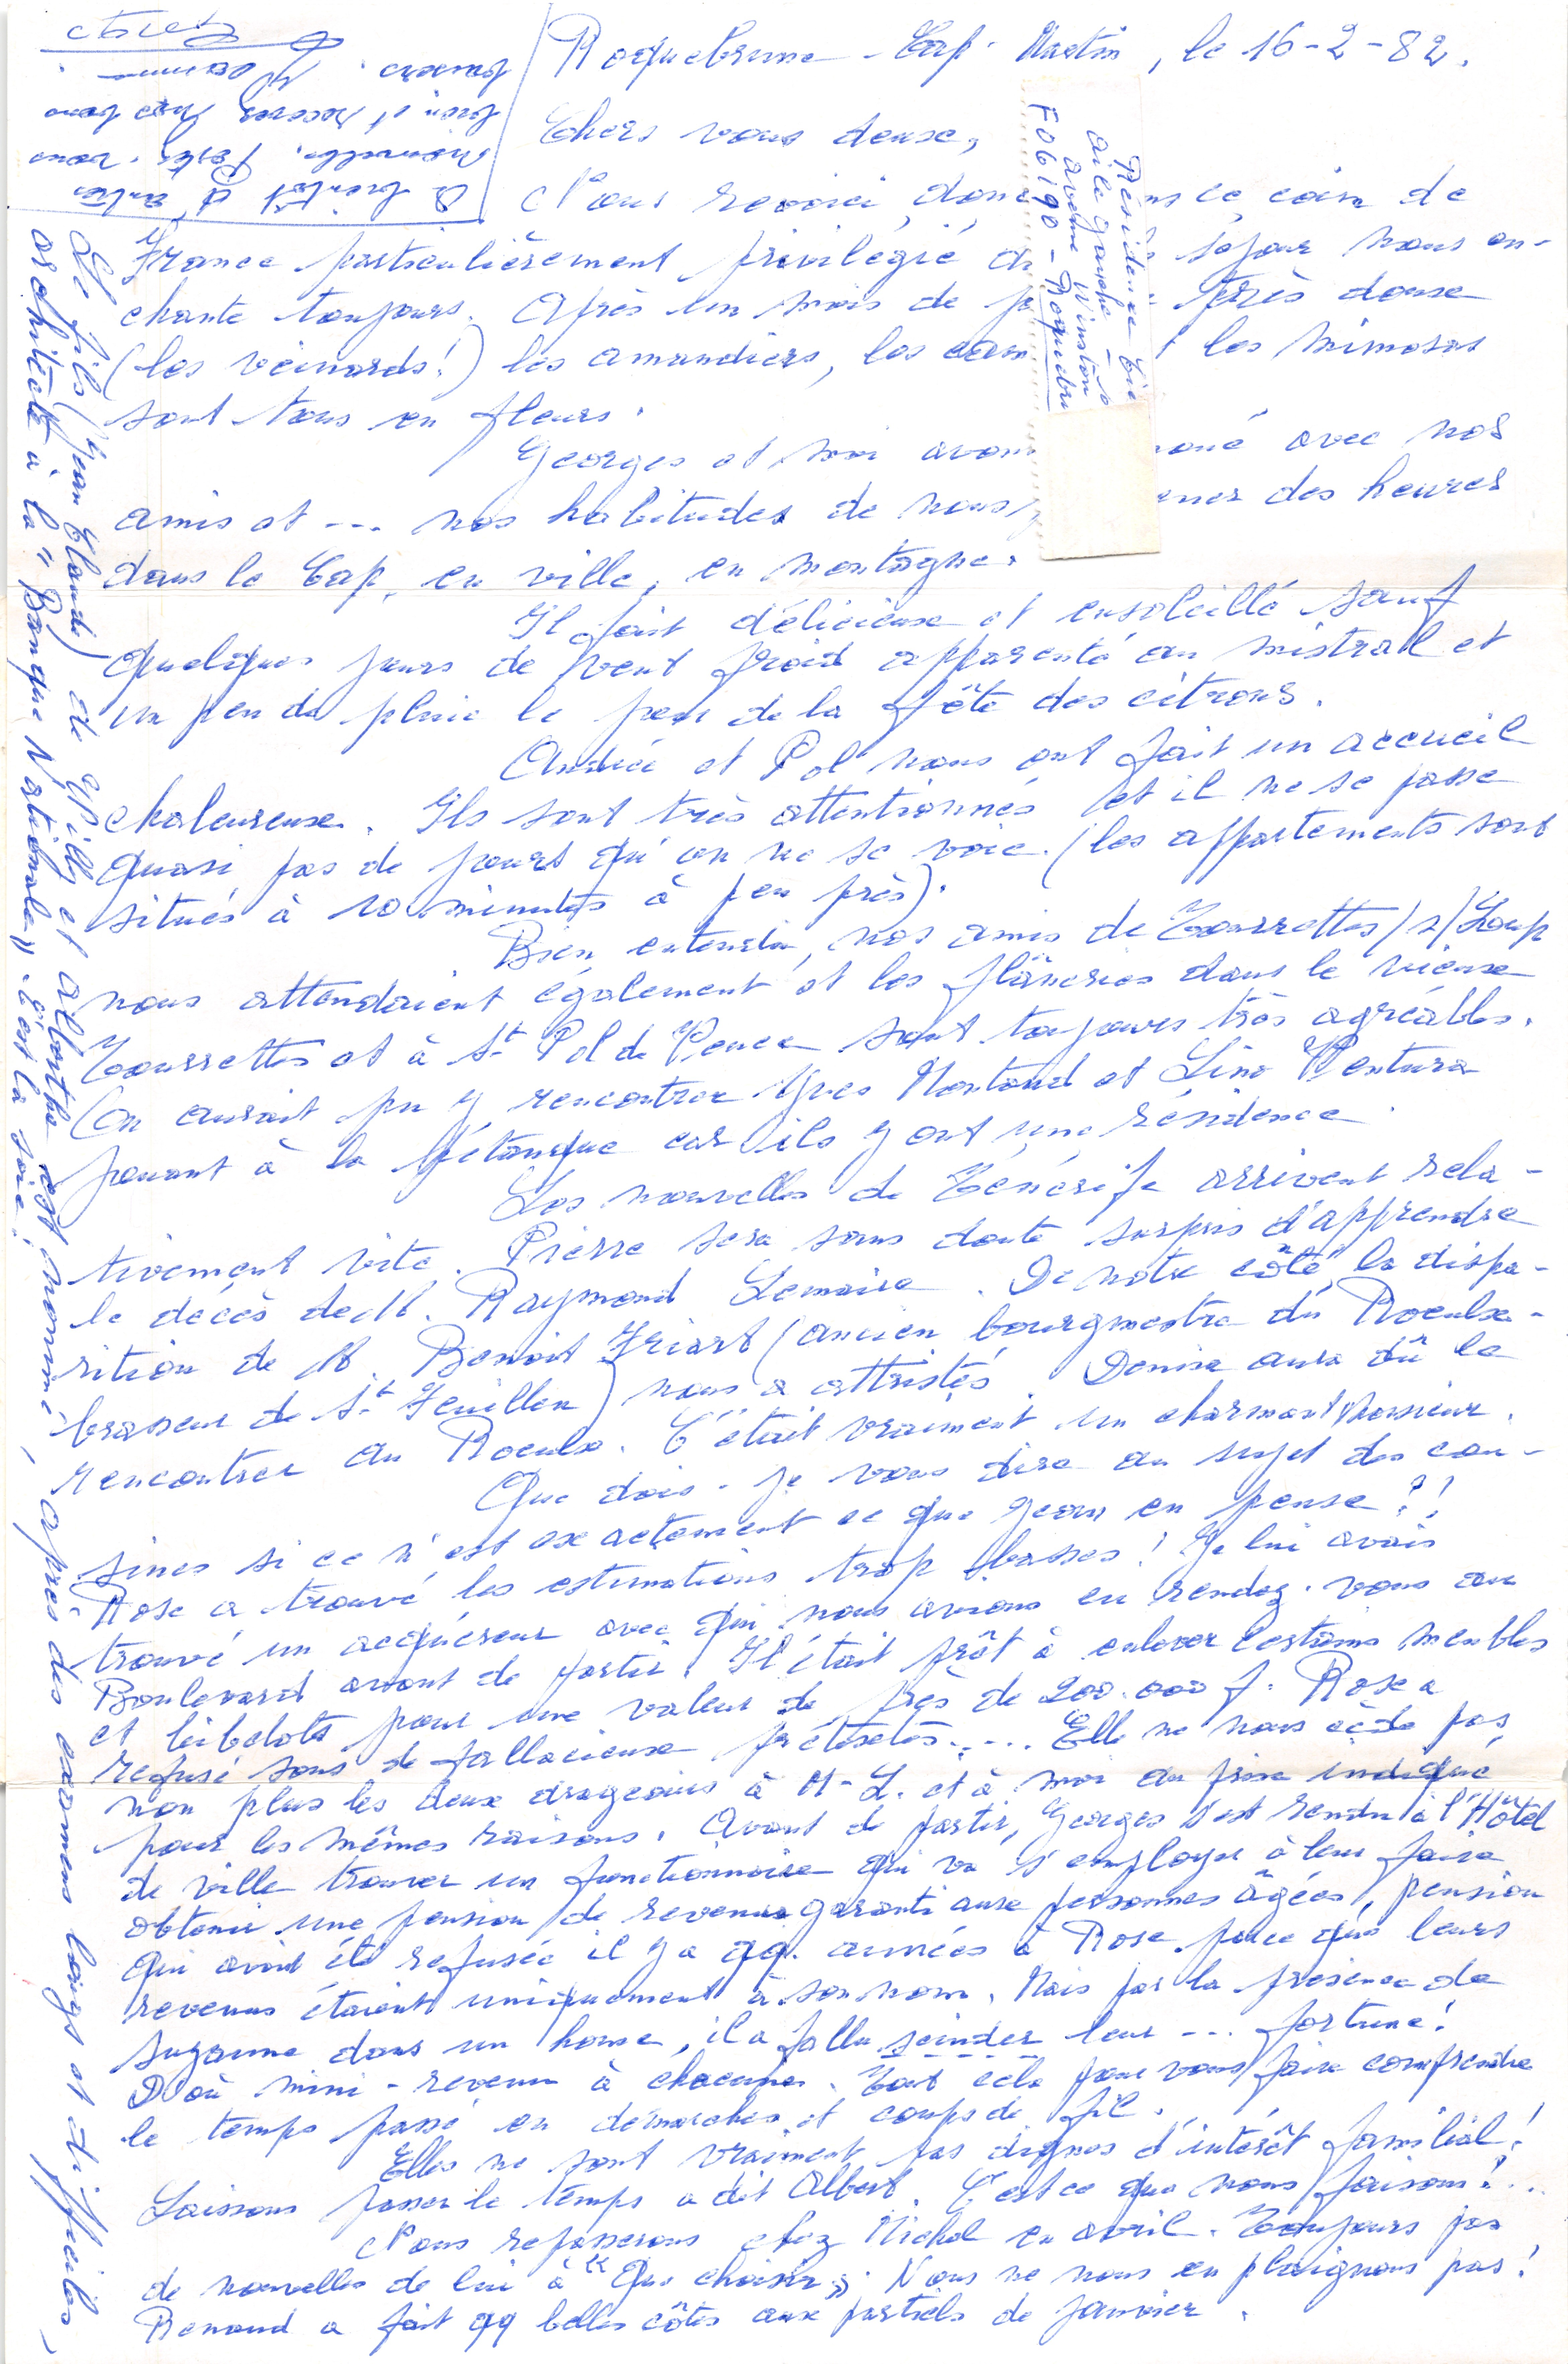 Roquebrune - Cap - Martin, le 16-2-82.
Chers vous deux,
Nous revoici donc ns ce coin de
France particulièrement privilégié séjour nous en-
chante toujours. Après un mois de très doux
(les veinards!) les amandiers, les cam les mimosas
sont tous en fleurs.
Georges et moi avons noué avec nos
amis et --- nos habitudes de nous ener des heures
dans le Cap, en ville, en montagne.
Il fait délicieux et ensoleillé sauf
quelques jours de vent froid apparenté au mistral et
un peu de pluie le jour de la fête des citrons.
Andrée et Pol nous ont fait un accueil
chaleureux. Ils sont très attentionnés et il ne se passe
quasi pas de jours qu'on ne se voie. (les appartements sont
situés à 10 minutes à peu près).
Bien entendu, nos amis de Tourrettes/s/Loup
nous attendaient également et les flâneries dans le vieux
Tourrettes et à St Pol de Vence sont toujours très agréables.
(on aurait pu y rencontrer Yves Montand et Lino Ventura
jouant à la pétanque car ils y ont une résidence.
Les nouvelles de Ténérife arrivent rela-
tivement vite. Pierre sera sans doute surpris d'apprendre
le décès de M. Raymond Lemaire. De notre côté, la dispa-
rition de M. Benoit Friart (ancien bourgmestre du Roeulx -
brasseur de St Feuillen) nous a attristés. Denise aura dû le
rencontrer au Roeulx. C'était vraiment un charmant Monsieur.
Que dois-je vous dire au sujet des cou-
sines si ce n'est exactement ce que Jean en pense?!
Rose a trouvé les estimations trop basses! Je lui avais
trouvé un acquéreur avec qui nous avions eu rendez-vous au
Boulevard avant de partir. Il était prêt à enlever certains meubles
et bibelots pour une valeur de près de 200.000 f. Rose a
refusé sous de fallacieux prétextes.... Elle ne nous cède pas
non plus les deux drageoirs à M-L. et à moi au prix indiqué
pour les mêmes raisons. Avant de partir, Georges s'est rendu à l'Hôtel
de ville trouver un fonctionnaire qui va s'employer à leur faire
obtenir une pension de revenu garanti aux personnes âgées, pension
qui avait été refusée il y a qq. années à Rose parce que leurs
revenus étaient uniquement à son nom. Mais par la présence de
Suzanne dans un home, il a fallu scinder leur --- fortune!
D'où mini-revenu à chacune. Tout cela pour vous faire comprendre
le temps passé en démarches et coups de fil.
Elles ne sont vraiment pas dignes d'intérêt familial!
Laissons passer le temps a dit Albert. C'est ce que nous faisons!...
Nous repasserons chez Michel en avril. Toujours pas
de nouvelles de lui à "Que choisir". Nous ne nous en plaignons pas!
Renaud a fait qq belles côtes aux partiels de janvier.
Le fils (Jean Claude) de Willy et Alberthe est nommé, après des examens longs et difficiles,
architecte à la "Banque Nationale". C'est la joie!
A bientôt d'autres
nouvelles. Portez-vous
bien et recevez nos bons
baisers.
Résidence
aile gauche -
avenue Winston
F 06190 - Roquebru